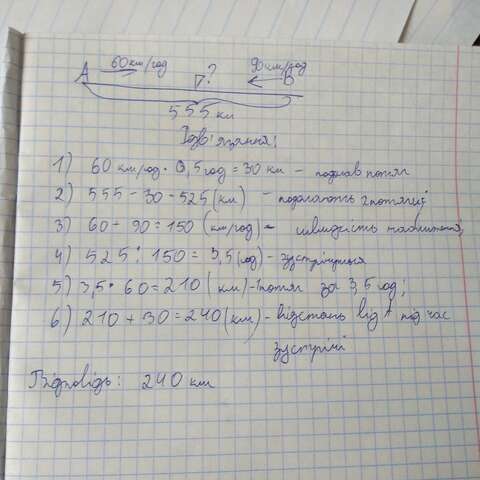 60 км/год ? 90 км/год
А В
555 км
Розв'язання:
1) 60 км/год · 0,5 год = 30 км – подолав потяг
2) 555 – 30 – 525 (км) – подолають 2 потяги;
3) 60 – 90 = 150 (км/год) – швидкість наближення;
4) 525 : 150 = 3,5 (год) – зустрінуться
5) 3,5 · 60 = 210 (км) – 1 потяг за 3,5 год;
6) 210 + 30 = 240 (км) – відстань від А під час
зустрічі
Відповідь: 240 км